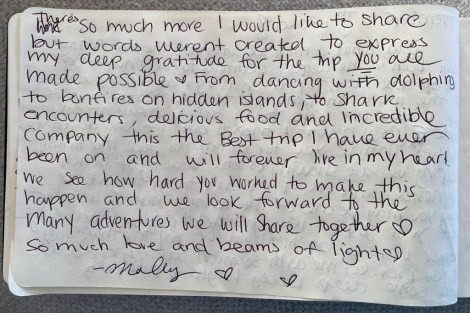 There's so much more I would like to share
but words werent created to express
my deep gratitude for the trip you all
made possible ♡ From dancing with dolphins
to bonfires on hidden islands, to shark
encounters, delicious food and incredible
company this the Best trip I have ever
been on and will forever live in my heart.
We see how hard you worked to make this
happen and we look forward to the
many adventures we will share together ♡
So much love and beams of light ♡
♡ ♡